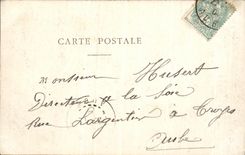 CARTE POSTALE
Monsieur Husert
Directeur de la Soie
Rue Largentier à Troyes
Aube